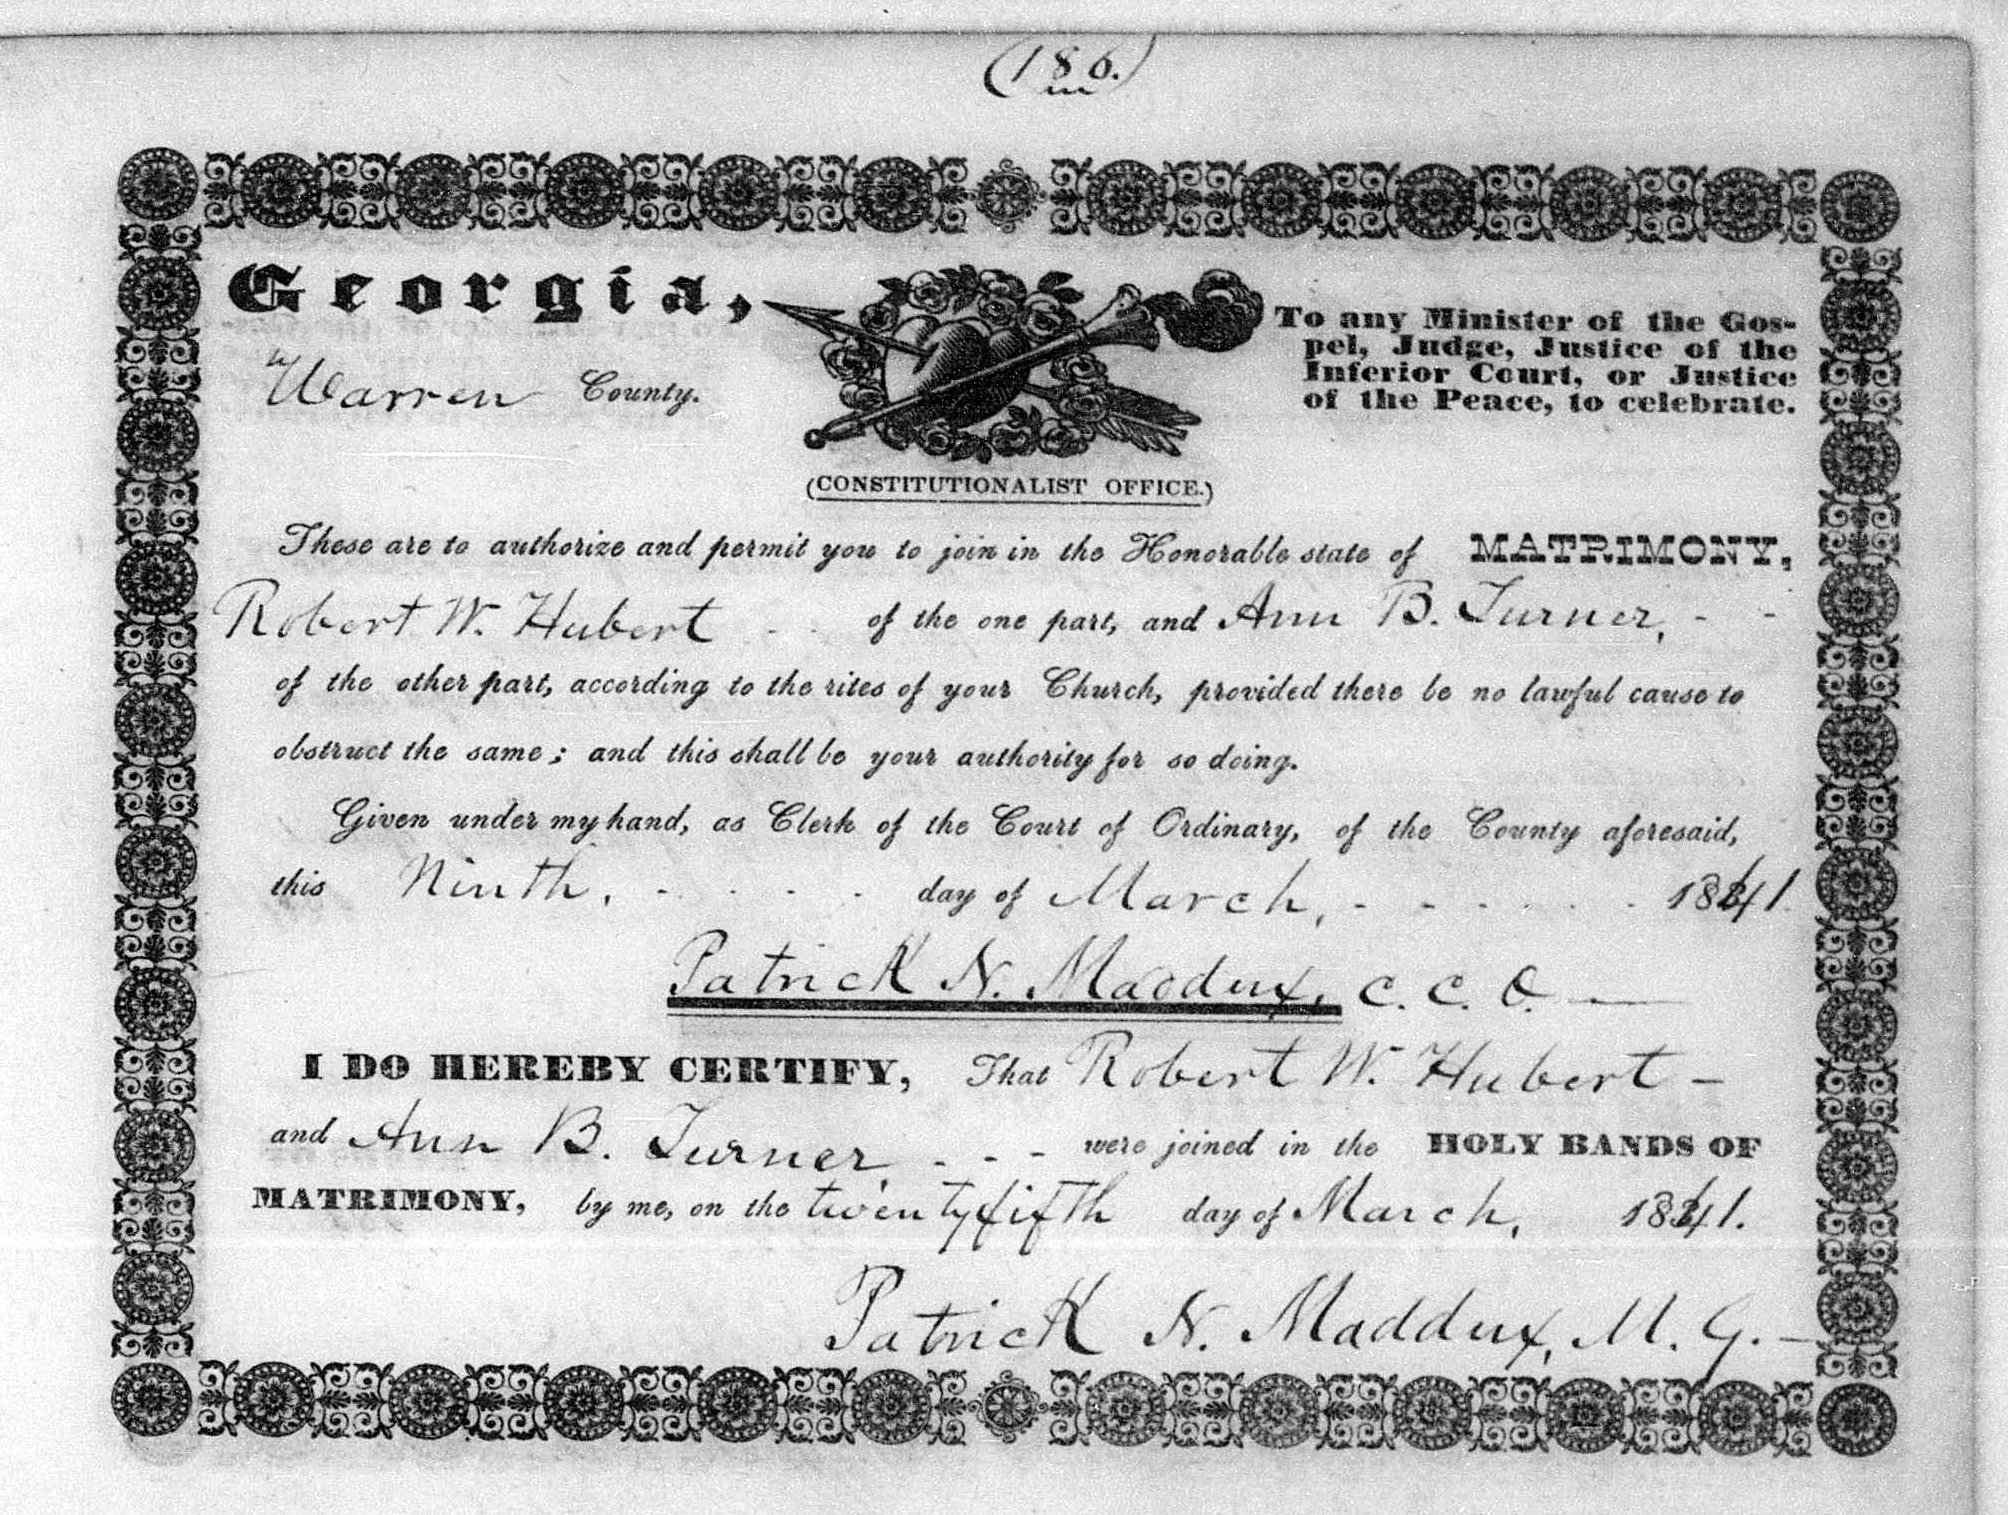 (186.)
Georgia,
Warren County.
To any Minister of the Gos-
pel, Judge, Justice of the
Inferior Court, or Justice
of the Peace, to celebrate.
(CONSTITUTIONALIST OFFICE.)
These are to authorize and permit you to join in the Honorable state of MATRIMONY,
Robert W. Hubert - - of the one part, and Ann B. Turner, - -
of the other part, according to the rites of your Church, provided there be no lawful cause to
obstruct the same; and this shall be your authority for so doing.
Given under my hand, as Clerk of the Court of Ordinary, of the County aforesaid,
this Ninth, - - - - day of March, - - - - - - 1841.
Patrick N. Maddux, C. C. O. —
I DO HEREBY CERTIFY, That Robert W. Hubert -
and Ann B. Turner, - - - were joined in the HOLY BANDS OF
MATRIMONY, by me, on the twenty fifth day of March, 1841.
Patrick N. Maddux, M. G. -